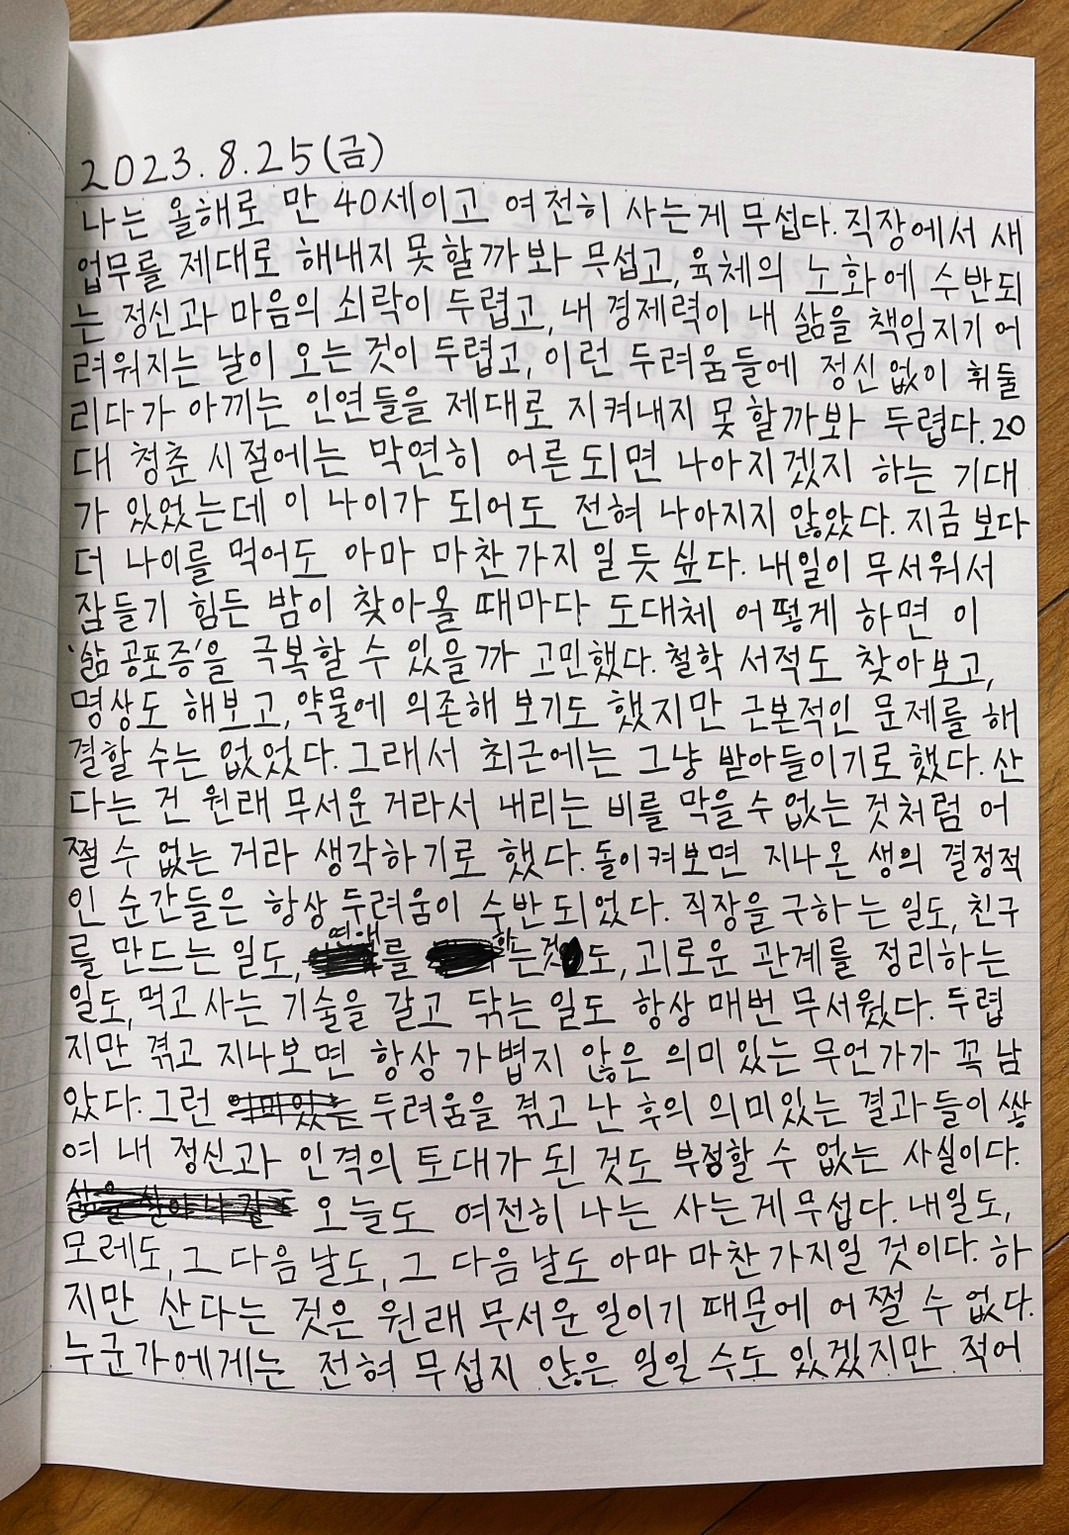 2023.8.25(금)
나는 올해로 만 40세이고 여전히 사는게 무섭다. 직장에서 새
업무를 제대로 해내지 못할까봐 무섭고, 육체의 노화에 수반되
는 정신과 마음의 쇠락이 두렵고, 내 경제력이 내 삶을 책임지기 어
려워지는 날이 오는 것이 두렵고, 이런 두려움들에 정신없이 휘둘
리다가 아끼는 인연들을 제대로 지켜내지 못할까봐 두렵다. 20
대 청춘 시절에는 막연히 어른되면 나아지겠지 하는 기대
가 있었는데 이 나이가 되어도 전혀 나아지지 않았다. 지금보다
더 나이를 먹어도 아마 마찬가지일듯 싶다. 내일이 무서워서
잠들기 힘든 밤이 찾아올 때마다 도대체 어떻게 하면 이
'삶 공포증'을 극복할 수 있을까 고민했다. 철학 서적도 찾아보고,
명상도 해보고, 약물에 의존해 보기도 했지만 근본적인 문제를 해
결할 수는 없었다. 그래서 최근에는 그냥 받아들이기로 했다. 산
다는 건 원래 무서운 거라서 내리는 비를 막을 수 없는 것처럼 어
쩔 수 없는 거라 생각하기로 했다. 돌이켜보면 지나온 생의 결정적
인 순간들은 항상 두려움이 수반되었다. 직장을 구하는 일도, 친구
를 만드는 일도, 연애를 하는것도, 괴로운 관계를 정리하는
일도, 먹고 사는 기술을 갈고 닦는 일도 항상 매번 무서웠다. 두렵
지만 겪고 지나보면 항상 가볍지 않은 의미있는 무언가가 꼭 남
았다. 그런 의미있는 두려움을 겪고 난 후의 의미있는 결과들이 쌓
여 내 정신과 인격의 토대가 된 것도 부정할 수 없는 사실이다.
오늘도 여전히 나는 사는게 무섭다. 내일도,
모레도, 그 다음날도, 그 다음날도 아마 마찬가지일 것이다. 하
지만 산다는 것은 원래 무서운 일이기 때문에 어쩔 수 없다.
누군가에게는 전혀 무섭지 않은 일일 수도 있겠지만 적어